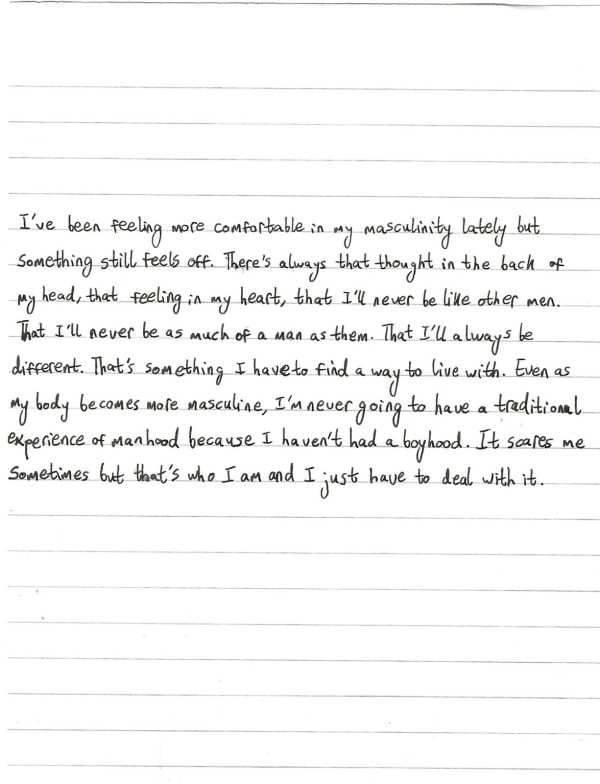 I've been feeling more comfortable in my masculinity lately but
something still feels off. There's always that thought in the back of
my head, that feeling in my heart, that I'll never be like other men.
That I'll never be as much of a man as them. That I'll always be
different. That's something I have to find a way to live with. Even as
my body becomes more masculine, I'm never going to have a traditional
experience of manhood because I haven't had a boyhood. It scares me
sometimes but that's who I am and I just have to deal with it.